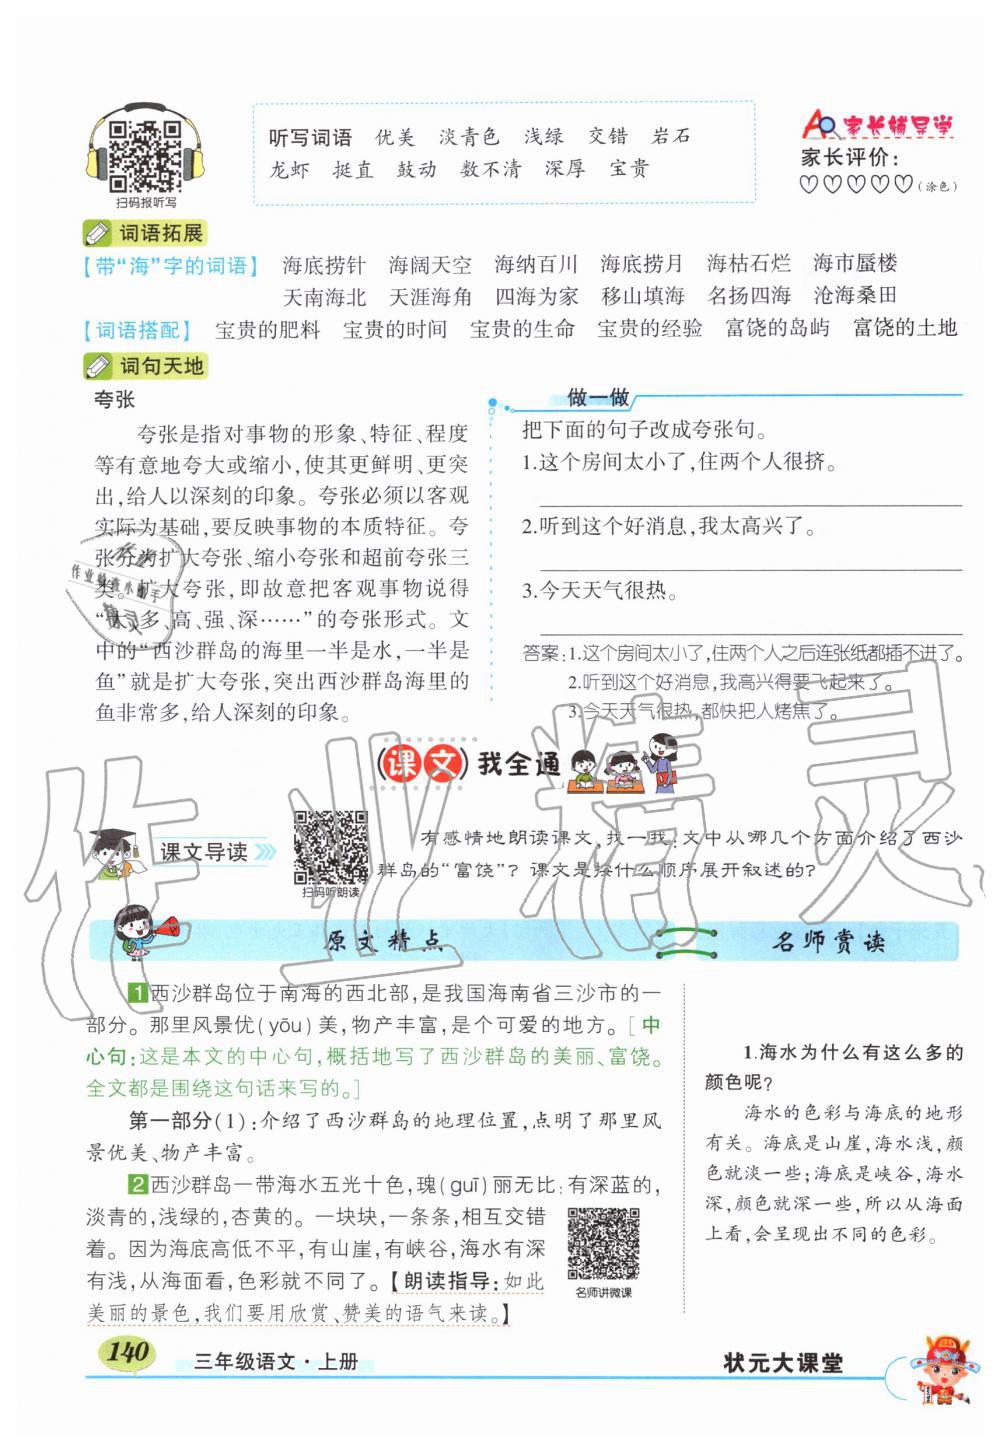 听写词语 优美 淡青色 浅绿 交错 岩石
龙虾 挺直 鼓动 数不清 深厚 宝贵
扫码报听写
家长辅导学
家长评价:
(涂色)
词语拓展
【带“海”字的词语】 海底捞针 海阔天空 海纳百川 海底捞月 海枯石烂 海市蜃楼
天南海北 天涯海角 四海为家 移山填海 名扬四海 沧海桑田
【词语搭配】 宝贵的肥料 宝贵的时间 宝贵的生命 宝贵的经验 富饶的岛屿 富饶的土地
词句天地
夸张
夸张是指对事物的形象、特征、程度
等有意地夸大或缩小,使其更鲜明、更突
出,给人以深刻的印象。夸张必须以客观
实际为基础,要反映事物的本质特征。夸
张分为扩大夸张、缩小夸张和超前夸张三
类。扩大夸张,即故意把客观事物说得
“大、多、高、强、深……”的夸张形式。文
中的“西沙群岛的海里一半是水,一半是
鱼”就是扩大夸张,突出西沙群岛海里的
鱼非常多,给人深刻的印象。
做一做
把下面的句子改成夸张句。
1.这个房间太小了,住两个人很挤。
2.听到这个好消息,我太高兴了。
3.今天天气很热。
答案:1.这个房间太小了,住两个人之后连张纸都插不进了。
2.听到这个好消息,我高兴得要飞起来了。
3.今天天气很热,都快把人烤焦了。
课文 我全通
课文导读
扫码听朗读
有感情地朗读课文,找一找:文中从哪几个方面介绍了西沙
群岛的“富饶”?课文是按什么顺序展开叙述的?
原文精点 名师赏读
1 西沙群岛位于南海的西北部,是我国海南省三沙市的一
部分。那里风景优(yōu)美,物产丰富,是个可爱的地方。[中
心句:这是本文的中心句,概括地写了西沙群岛的美丽、富饶。
全文都是围绕这句话来写的。]
第一部分(1):介绍了西沙群岛的地理位置,点明了那里风
景优美、物产丰富。
2 西沙群岛一带海水五光十色,瑰(guī)丽无比:有深蓝的,
淡青的,浅绿的,杏黄的。一块块,一条条,相互交错
着。因为海底高低不平,有山崖,有峡谷,海水有深
有浅,从海面看,色彩就不同了。【朗读指导:如此
美丽的景色,我们要用欣赏、赞美的语气来读。】
名师讲微课
1.海水为什么有这么多的
颜色呢?
海水的色彩与海底的地形
有关。海底是山崖,海水浅,颜
色就淡一些;海底是峡谷,海水
深,颜色就深一些,所以从海面
上看,会呈现出不同的色彩。
140 三年级语文·上册
状元大课堂
作业精灵
作业检查小助手
精灵